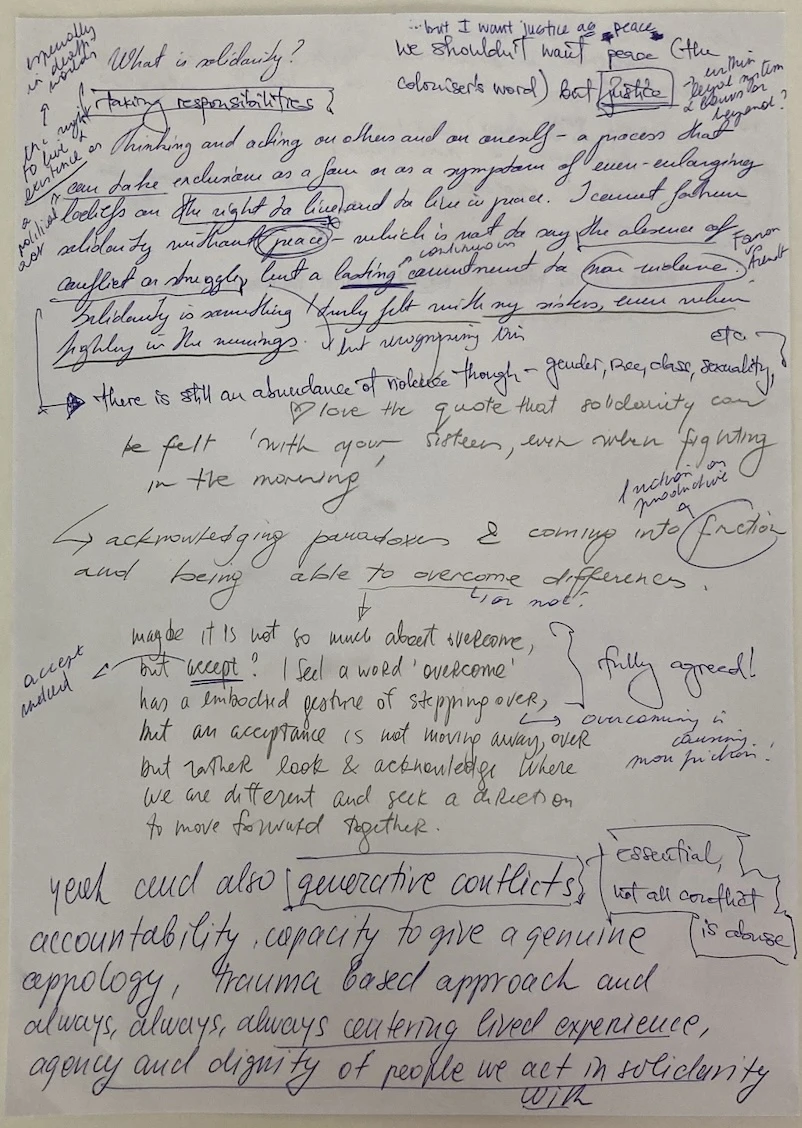 ...but I want justice as peace
we shouldn't want peace (the
coloniser's word) but justice
within legal system
& courts or
beyond?
especially
in death
worlds
the right
to live &
existence as
a
political
act
What is solidarity?
taking responsibilities
Thinking and acting on others and on oneself – a process that
can take exclusion as a form or as a symptom of ever-enlarging
beliefs on the right to live and to live in peace. I cannot fathom
solidarity without peace – which is not to say the absence of
conflict or struggle, but a lasting commitment to non violence.
continuous
Fanon
Arendt
Solidarity is something I truly felt with my sisters, even when
fighting in the mornings.
but recognizing this
etc.
there is still an abundance of violence though – gender, race, class, sexuality,
♡ love the quote that solidarity can
be felt 'with your sisters, even when fighting
in the morning'
friction as
productive
↳ acknowledging paradoxes & coming into friction
and being able to overcome differences.
or not?
maybe it is not so much about overcome,
but accept? I feel a word 'overcome'
has a embodied gesture of stepping over,
but an acceptance is not moving away, over
but rather look & acknowledge where
we are different and seek a direction
to move forward together.
accept
indeed
fully agreed!
overcoming is
causing
more friction!
yeah and also generative conflicts
essential,
not all conflict
is abuse
accountability, capacity to give a genuine
appology, trauma based approach and
always, always, always centering lived experience,
agency and dignity of people we act in solidarity
with